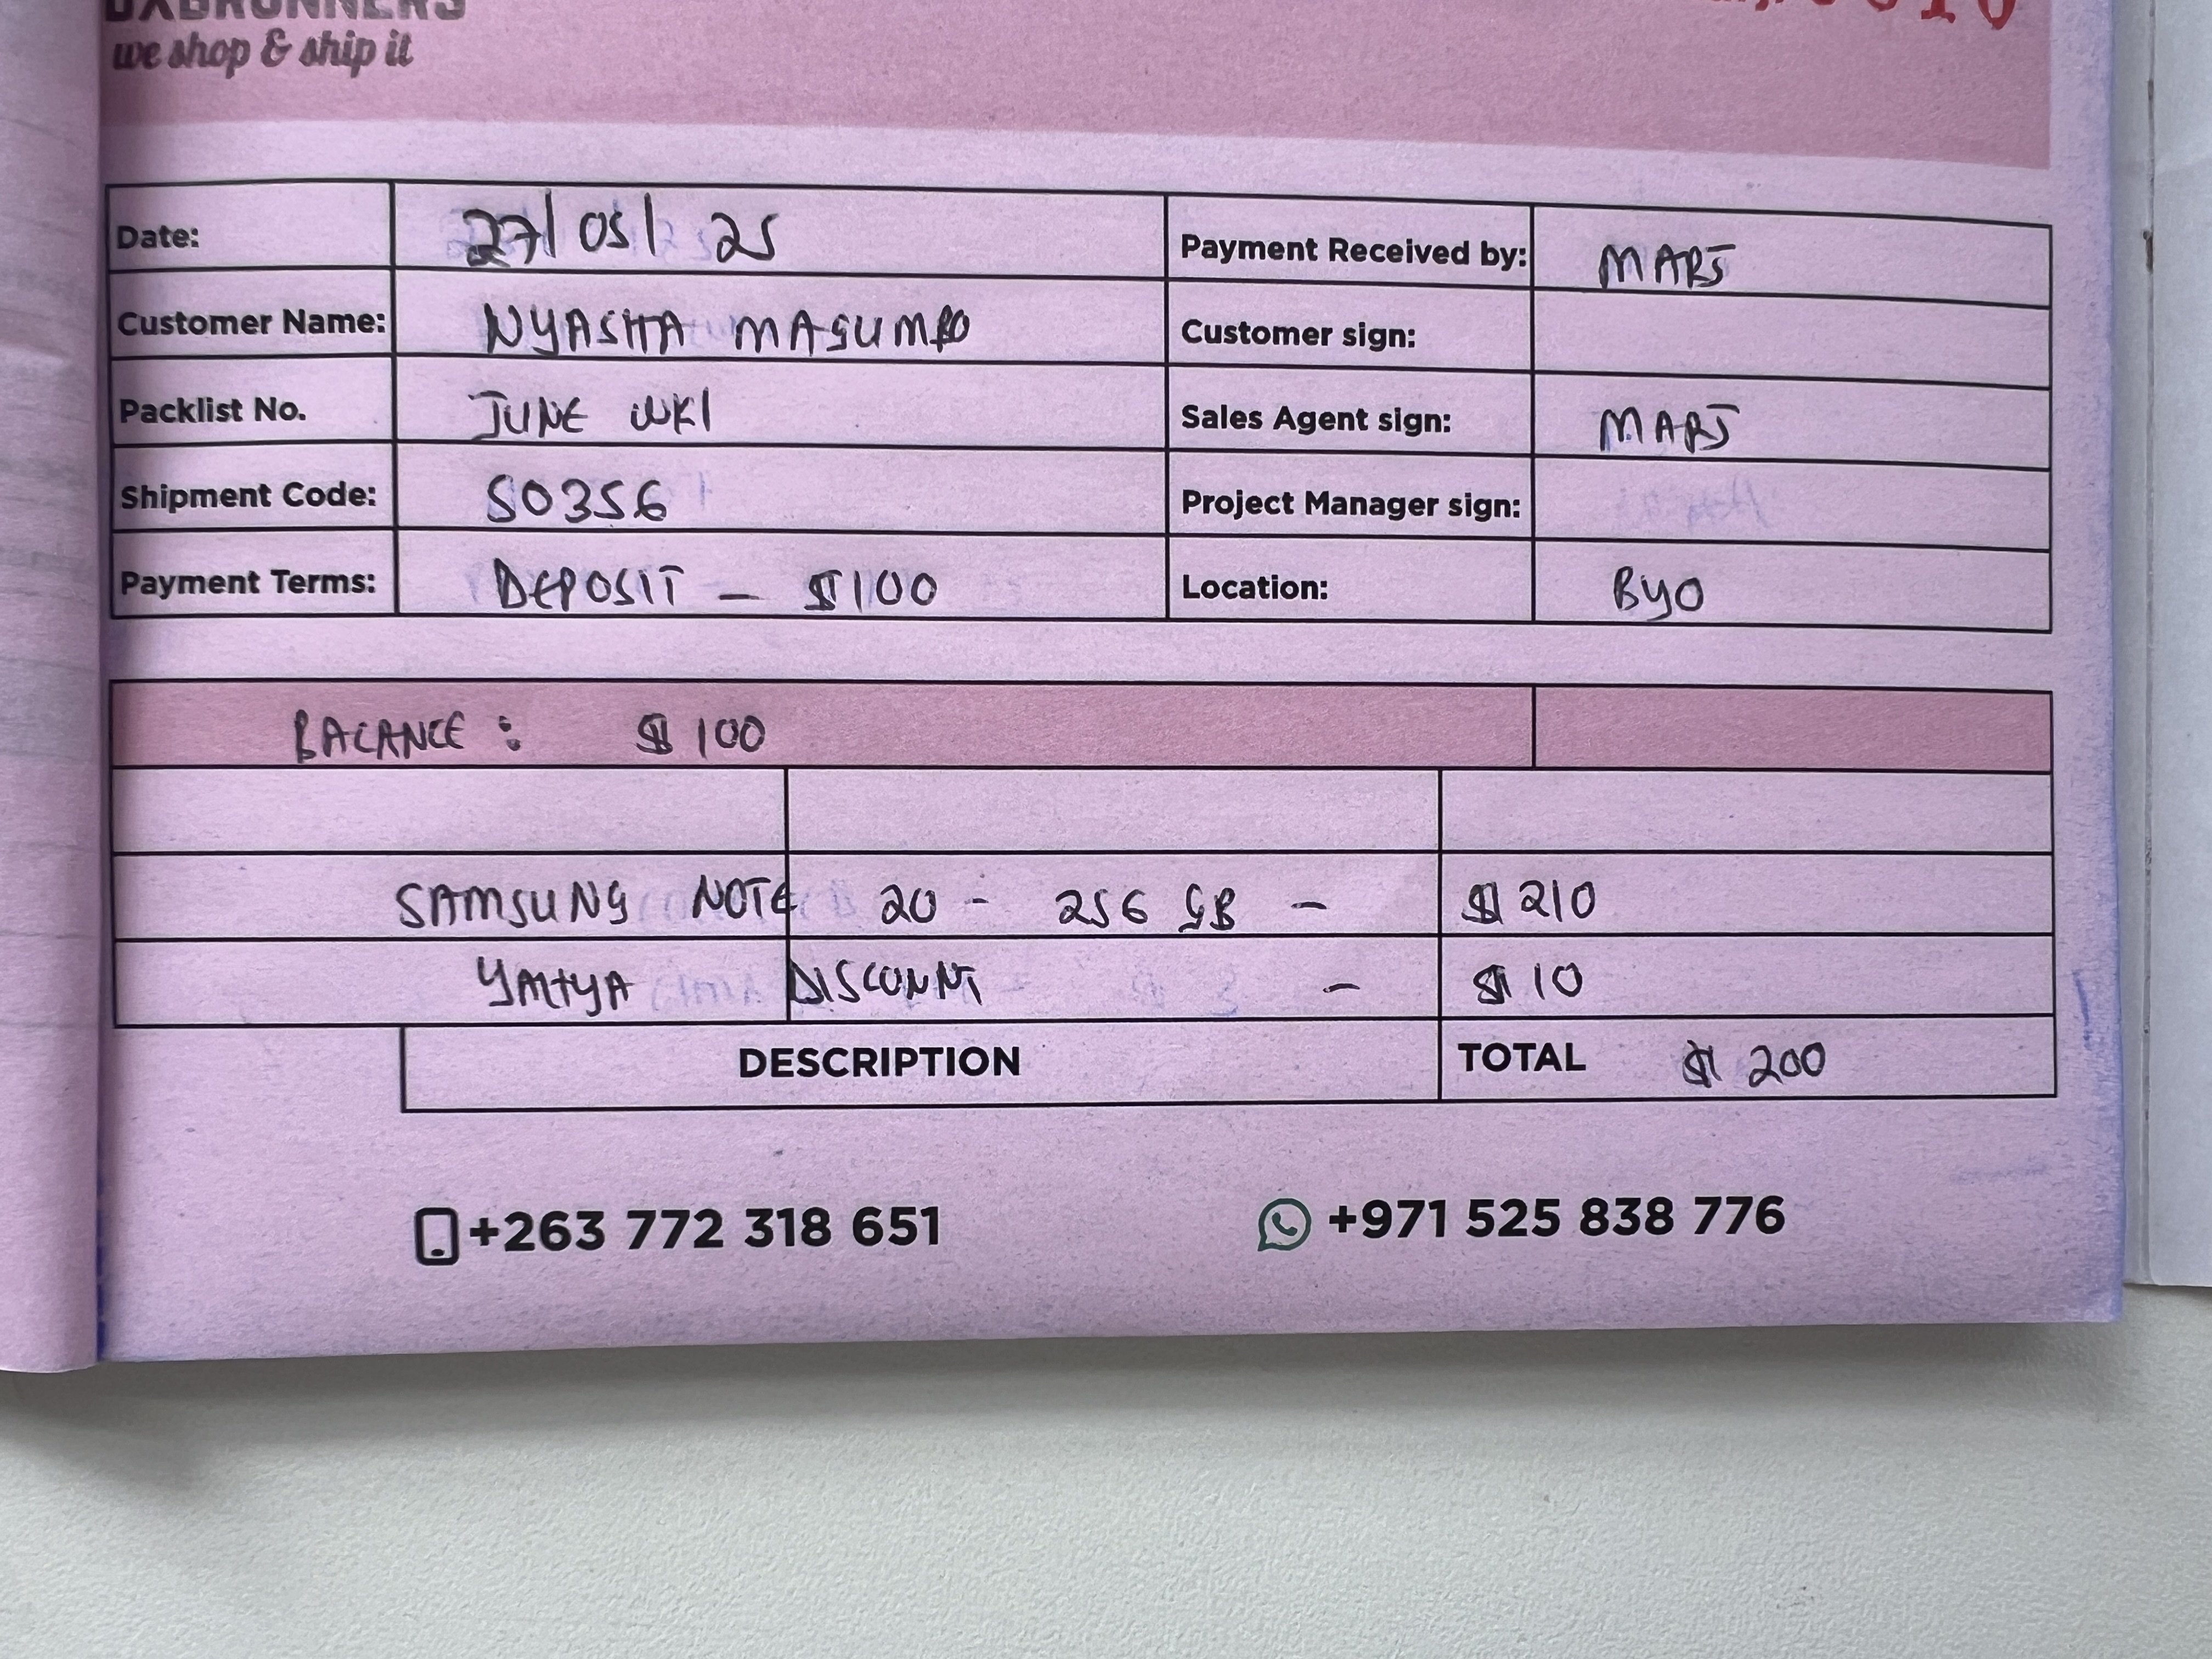 DXBRUNNERS
we shop & ship it
Date: 27/05/25 Payment Received by: MARJ
Customer Name: NYASHA MAGUMBO Customer sign:
Packlist No. JUNE WK1 Sales Agent sign: MARJ
Shipment Code: S0356 Project Manager sign:
Payment Terms: DEPOSIT - $100 Location: BYO
BALANCE : $100
SAMSUNG NOTE 20 - 256 GB - $210
DISCOUNT - $10
DESCRIPTION TOTAL $200
+263 772 318 651 +971 525 838 776